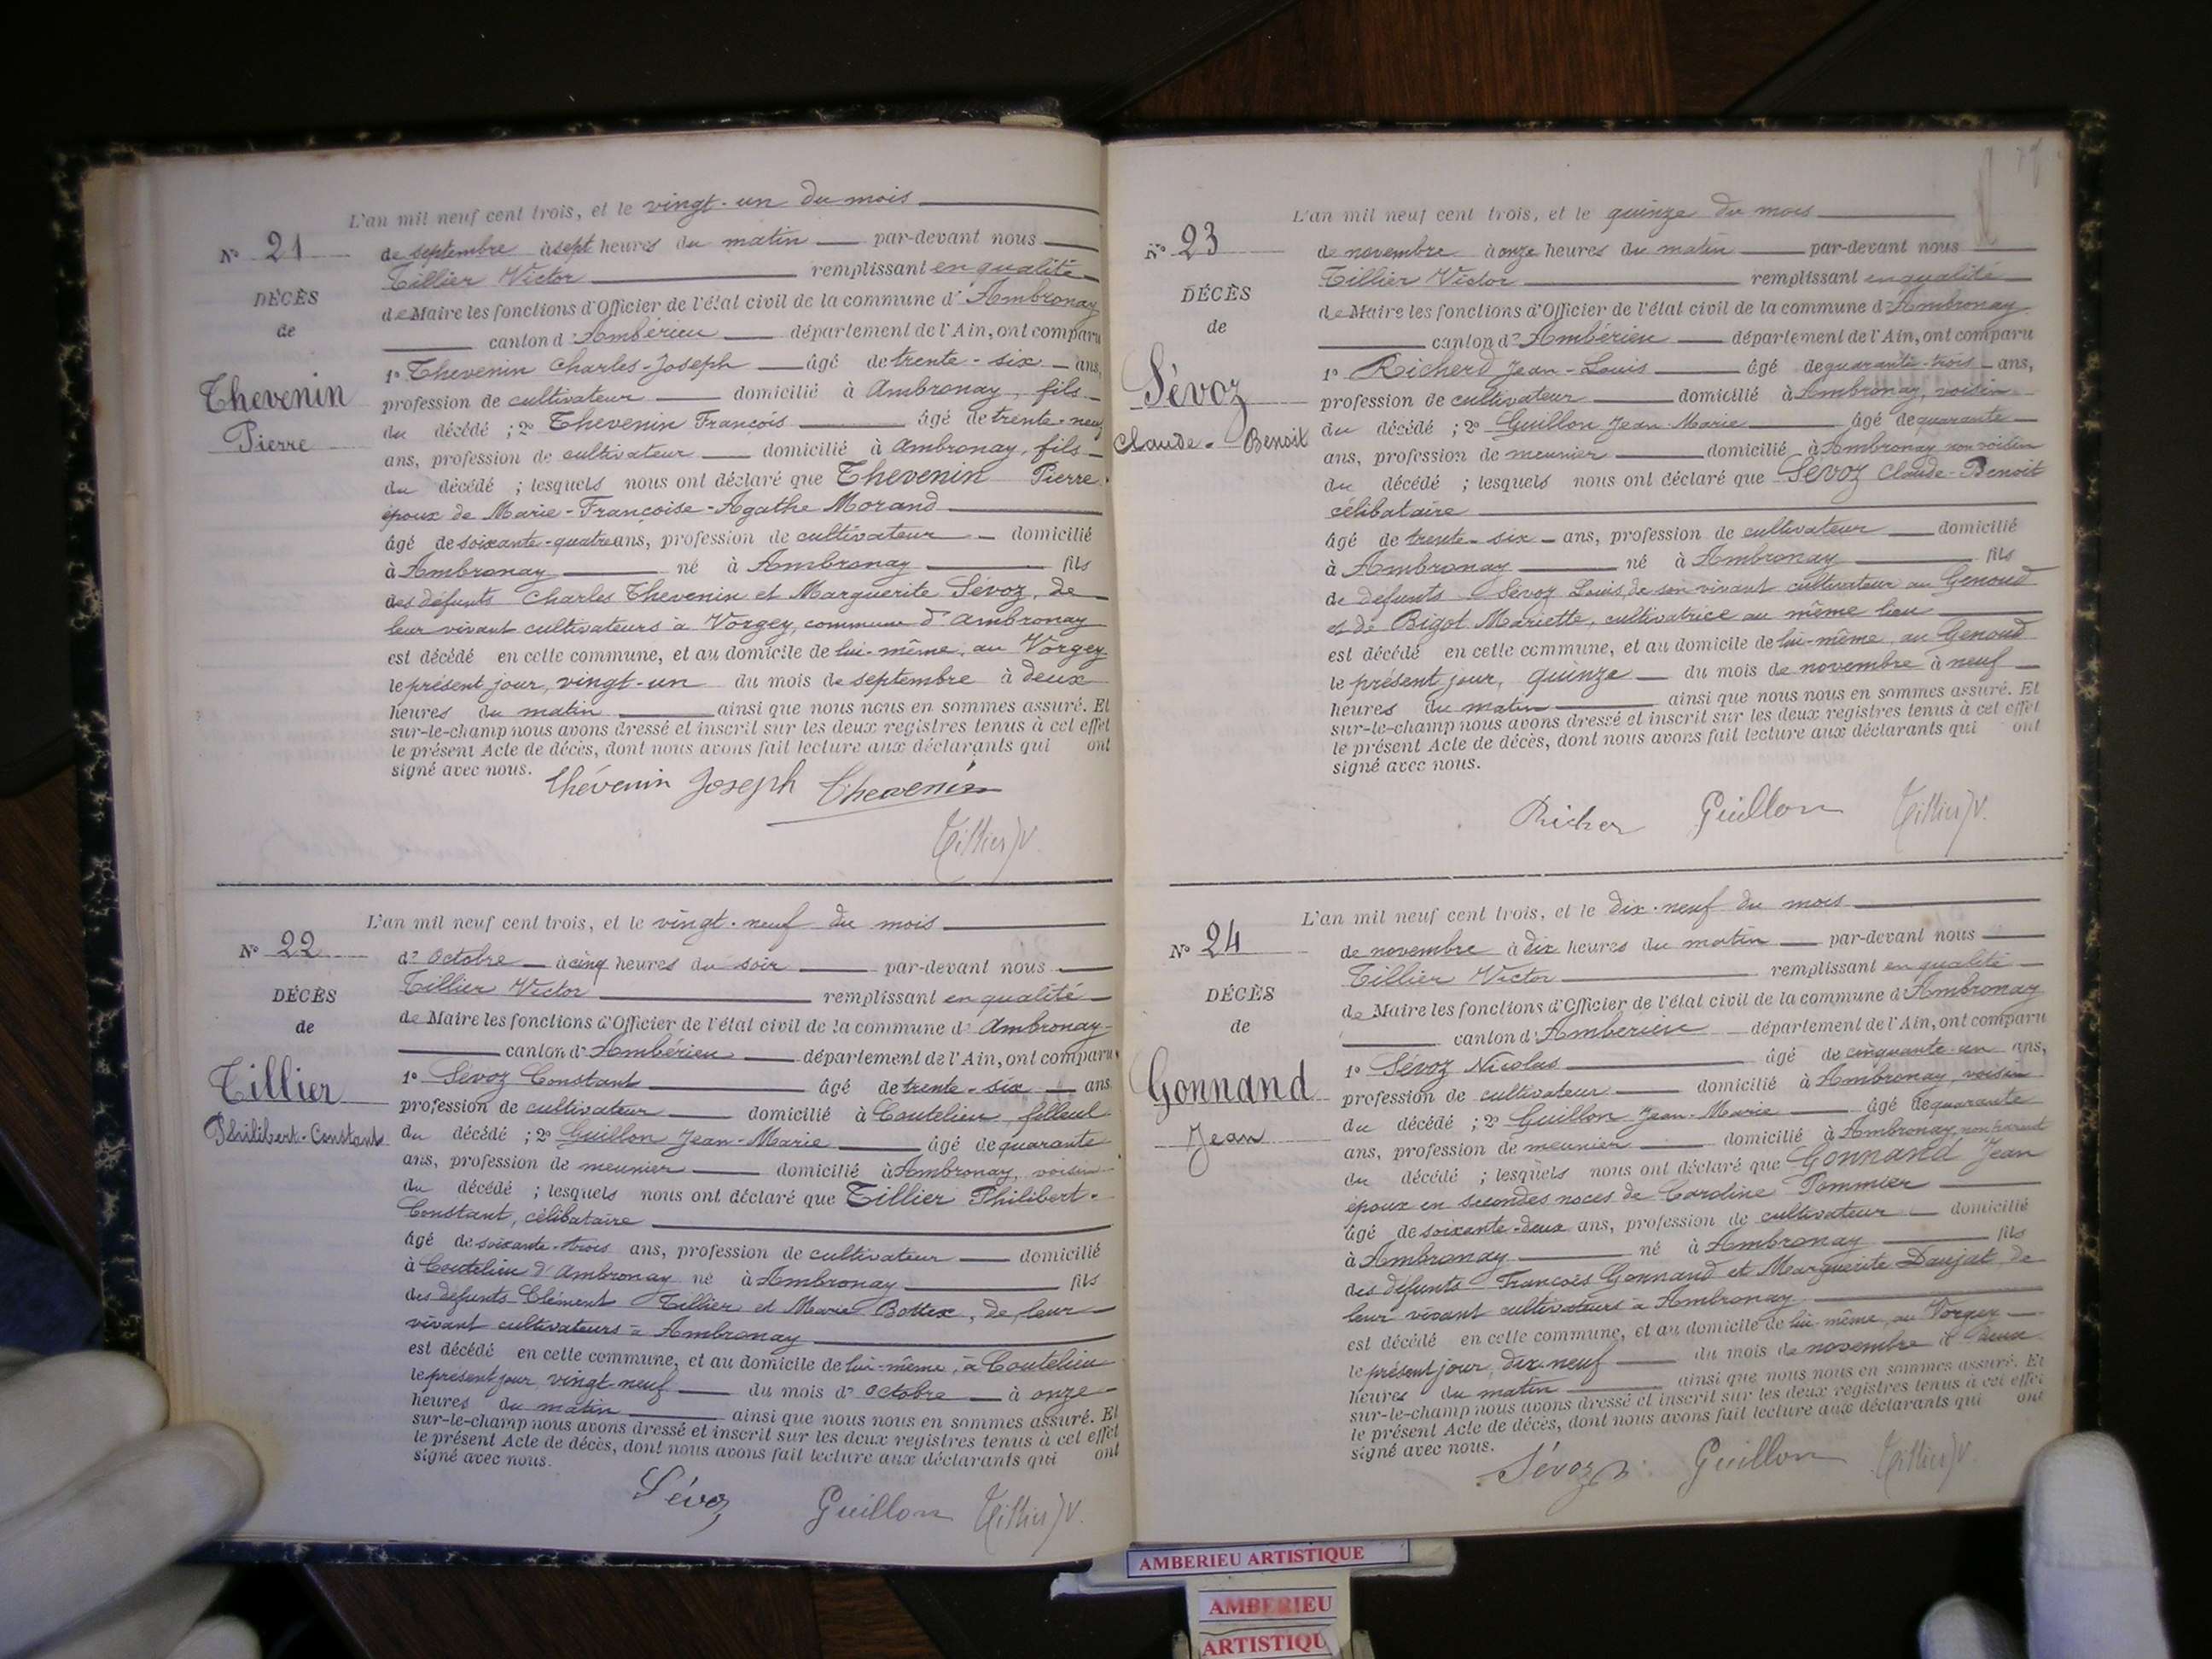 L'an mil neuf cent trois, et le vingt-un du mois
N° 21
de septembre à sept heures du matin par-devant nous
Tillier Victor remplissant en qualité
DÉCÈS
de Maire les fonctions d'Officier de l'état civil de la commune d'Ambronay
de
canton d'Ambérieu département de l'Ain, ont comparu
1° Thevenin Charles-Joseph âgé de trente-six ans,
Thevenin
profession de cultivateur domicilié à Ambronay, fils
Pierre
du décédé ; 2° Thevenin François âgé de trente-neuf
ans, profession de cultivateur domicilié à Ambronay, fils
du décédé ; lesquels nous ont déclaré que Thevenin Pierre
époux de Marie-Françoise-Agathe Morand
âgé de soixante-quatre ans, profession de cultivateur domicilié
à Ambronay né à Ambronay fils
des défunts Charles Thevenin et Marguerite Sévoz, de
leur vivant cultivateurs à Vorgey, commune d'Ambronay
est décédé en cette commune, et au domicile de lui-même, au Vorgey
le présent jour, vingt-un du mois de septembre à deux
heures du matin ainsi que nous nous en sommes assuré. Et
sur-le-champ nous avons dressé et inscrit sur les deux registres tenus à cet effet
le présent Acte de décès, dont nous avons fait lecture aux déclarants qui ont
signé avec nous.
Thévenin Joseph Thevenin
Tillier V.
L'an mil neuf cent trois, et le vingt-neuf du mois
N° 22
d'Octobre à cinq heures du soir par-devant nous
Tillier Victor remplissant en qualité
DÉCÈS
de Maire les fonctions d'Officier de l'état civil de la commune d'Ambronay
de
canton d'Ambérieu département de l'Ain, ont comparu
1° Sévoz Constant âgé de trente-six ans
Tillier
profession de cultivateur domicilié à Coutelieu, filleul
Philibert-Constant
du décédé ; 2° Guillon Jean-Marie âgé de quarante
ans, profession de meunier domicilié à Ambronay, voisin
du décédé ; lesquels nous ont déclaré que Tillier Philibert-
Constant, célibataire
âgé de soixante-trois ans, profession de cultivateur domicilié
à Coutelieu d'Ambronay né à Ambronay fils
des défunts Clément Tillier et Marie Bottex, de leur
vivant cultivateurs à Ambronay
est décédé en cette commune, et au domicile de lui-même, à Coutelieu
le présent jour vingt-neuf du mois d'Octobre à onze
heures du matin ainsi que nous nous en sommes assuré. Et
sur-le-champ nous avons dressé et inscrit sur les deux registres tenus à cet effet
le présent Acte de décès, dont nous avons fait lecture aux déclarants qui ont
signé avec nous.
Sévoz Guillon Tillier V.
L'an mil neuf cent trois, et le quinze du mois
N° 23
de novembre à onze heures du matin par-devant nous
Tillier Victor remplissant en qualité
DÉCÈS
de Maire les fonctions d'Officier de l'état civil de la commune d'Ambronay
de
canton d'Ambérieu département de l'Ain, ont comparu
1° Richerd Jean-Louis âgé de quarante-trois ans,
Sévoz
profession de cultivateur domicilié à Ambronay, voisin
Claude-Benoit
du décédé ; 2° Guillon Jean-Marie âgé de quarante
ans, profession de meunier domicilié à Ambronay non voisin
du décédé ; lesquels nous ont déclaré que Sévoz Claude-Benoit
célibataire
âgé de trente-six ans, profession de cultivateur domicilié
à Ambronay né à Ambronay fils
de défunts Sévoz Louis, de son vivant cultivateur au Genoud
et de Bigot Mariette, cultivatrice au même lieu
est décédé en cette commune, et au domicile de lui-même, au Genoud
le présent jour, quinze du mois de novembre à neuf
heures du matin ainsi que nous nous en sommes assuré. Et
sur-le-champ nous avons dressé et inscrit sur les deux registres tenus à cet effet
le présent Acte de décès, dont nous avons fait lecture aux déclarants qui ont
signé avec nous.
Richer Guillon Tillier V.
L'an mil neuf cent trois, et le dix-neuf du mois
N° 24
de novembre à dix heures du matin par-devant nous
Tillier Victor remplissant en qualité
DÉCÈS
de Maire les fonctions d'Officier de l'état civil de la commune d'Ambronay
de
canton d'Ambérieu département de l'Ain, ont comparu
1° Sévoz Nicolas âgé de cinquante-un ans,
Gonnand
profession de cultivateur domicilié à Ambronay, voisin
Jean
du décédé ; 2° Guillon Jean-Marie âgé de quarante
ans, profession de meunier domicilié à Ambronay, non parent
du décédé ; lesquels nous ont déclaré que Gonnand Jean
époux en secondes noces de Caroline Pommier
âgé de soixante-deux ans, profession de cultivateur domicilié
à Ambronay né à Ambronay fils
des défunts François Gonnand et Marguerite Daujat, de
leur vivant cultivateurs à Ambronay
est décédé en cette commune, et au domicile de lui-même, au Vorgey
le présent jour, dix-neuf du mois de novembre à deux
heures du matin ainsi que nous nous en sommes assuré. Et
sur-le-champ nous avons dressé et inscrit sur les deux registres tenus à cet effet
le présent Acte de décès, dont nous avons fait lecture aux déclarants qui ont
signé avec nous.
Sévoz N. Guillon Tillier V.
AMBERIEU ARTISTIQUE
AMBERIEU
ARTISTIQU